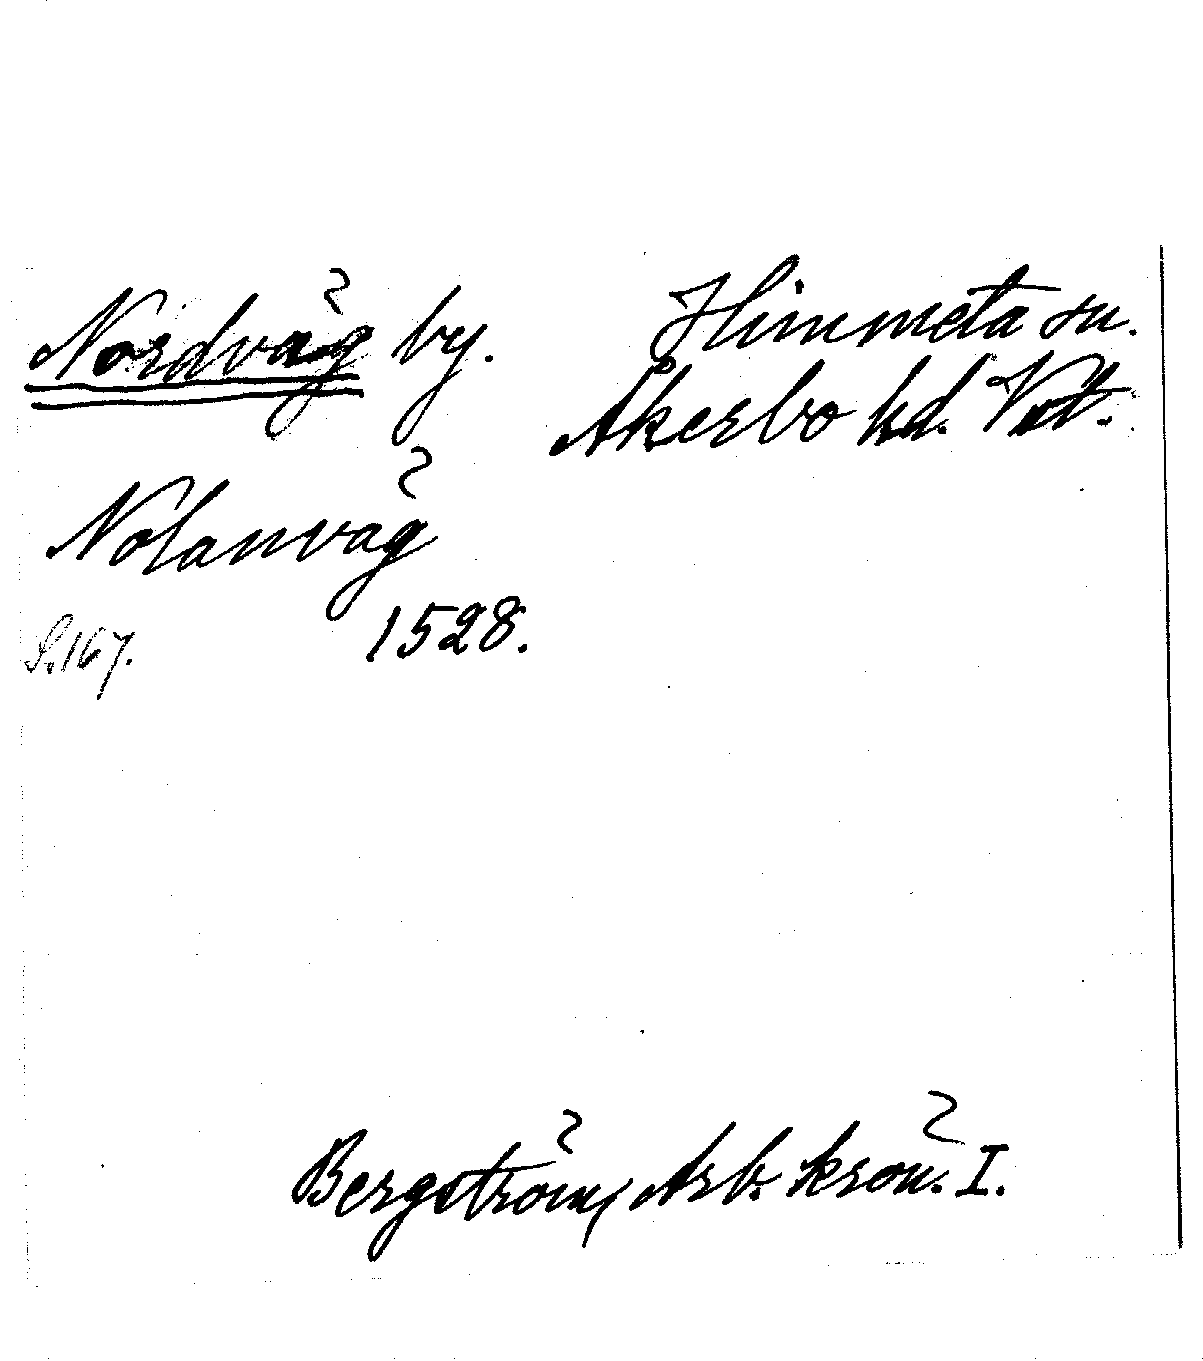 Nordväg by. Himmeta sn.
Åkerbo hd. Vst.
Nolanväg
S.167. 1528.
Bergström, Arb. krön. I.